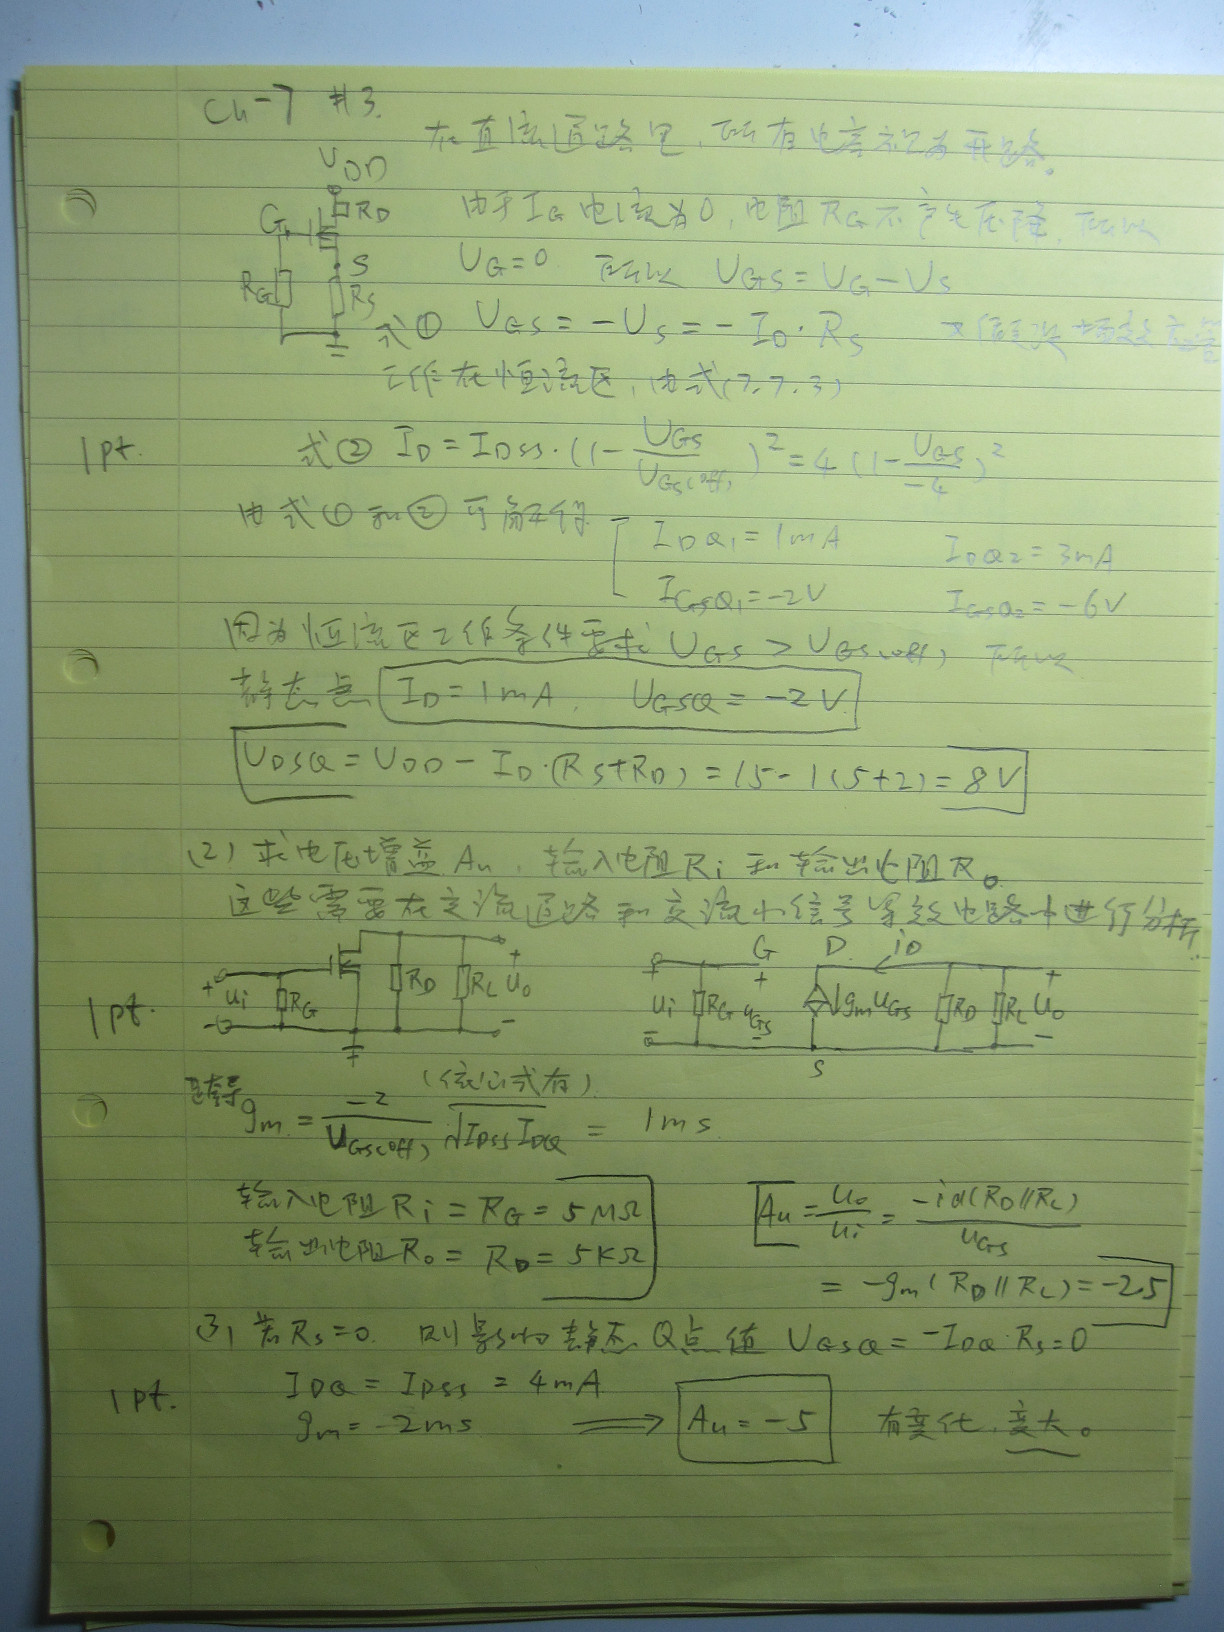 Ch-7 #3.
在直流通路里,所有电容视为开路。
VDD
RD
G
S
RG
RS
由于IG电流为0,电阻RG不产生压降,所以
UG=0 所以 UGS=UG-US
式① UGS=-US=-ID·RS
工作在恒流区,由式(7.7.3)
1pt.
式② ID=IDSS·(1-UGS/UGS(off))²=4(1-UGS/-4)²
由式①和②可解得
IDQ1=1mA IDQ2=3mA
IGSQ1=-2V IGSQ2=-6V
因为恒流区工作条件要求UGS>UGS(off),所以
静态点 ID=1mA. UGSQ=-2V
UDSQ=UDD-ID·(RS+RD)=15-1(5+2)=8V
(2)求电压增益Au,输入电阻Ri和输出电阻Ro
这些需要在交流通路和交流小信号等效电路中进行分析.
1pt.
+ ui - RG RD RL + uo -
ui RG + uGS - G D iD gmuGS RD RL + uo - S
(依公式有)
gm=-2/UGS(off) √IDSS IDQ = 1ms
输入电阻Ri=RG=5MΩ
输出电阻Ro=RD=5KΩ
Au=uo/ui=-id(RD//RL)/uGS
=-gm(RD//RL)=-2.5
(3)若RS=0. 则影响静态Q点值 UGSQ=-IDQ·RS=0
1pt.
IDQ=IDSS=4mA
gm=-2ms ⟹ Au=-5 有变化,变大。